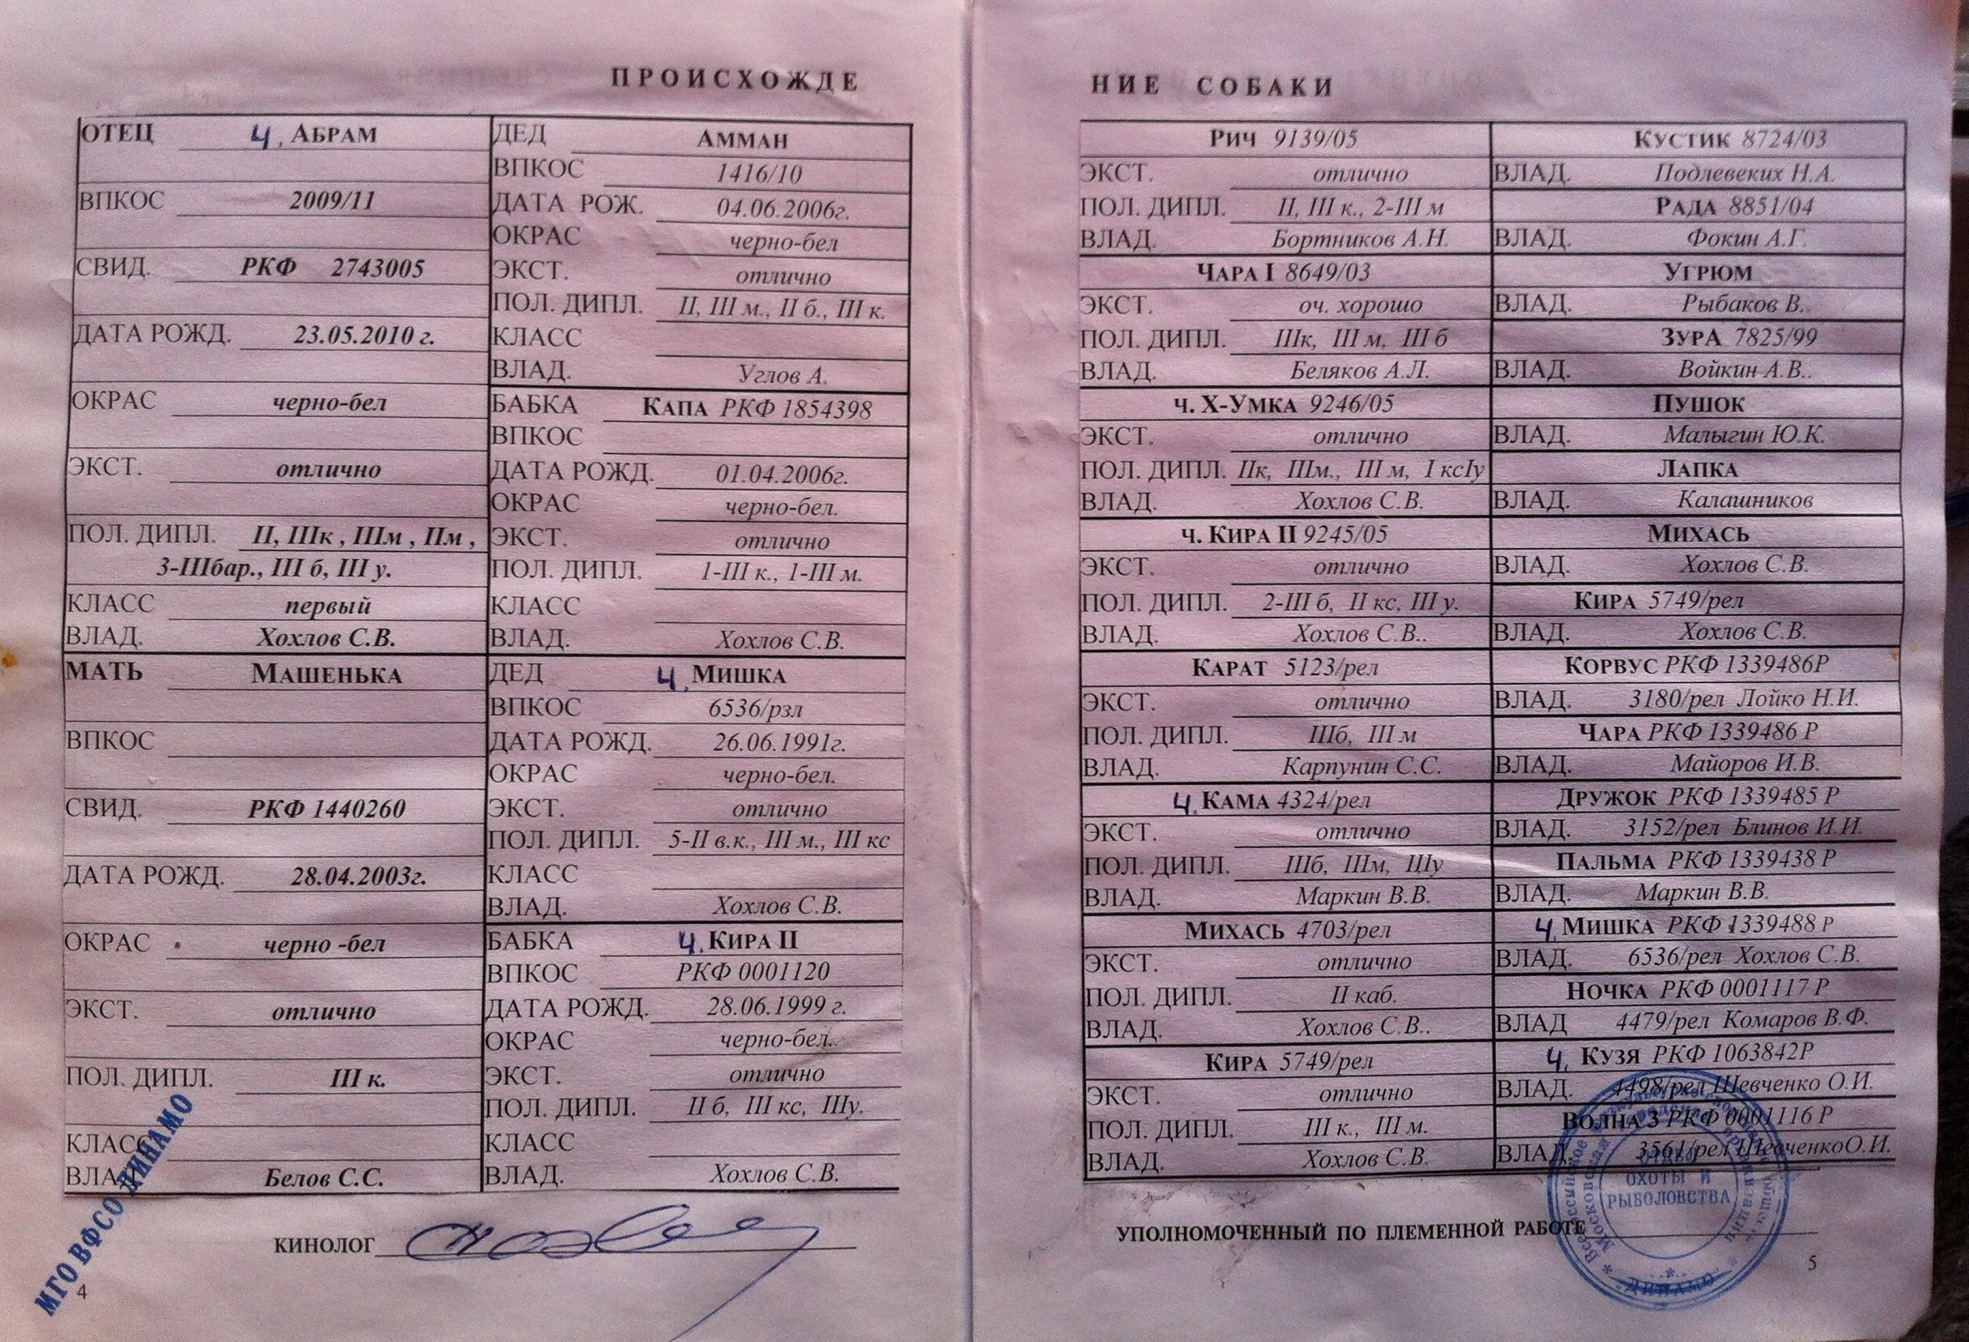 ПРОИСХОЖДЕ
ОТЕЦ ч. АБРАМ
ВПКОС 2009/11
СВИД. РКФ 2743005
ДАТА РОЖД. 23.05.2010 г.
ОКРАС черно-бел
ЭКСТ. отлично
ПОЛ. ДИПЛ. II, IIIк , IIIм , IIм ,
3-IIIбар., III б, III у.
КЛАСС первый
ВЛАД. Хохлов С.В.
МАТЬ МАШЕНЬКА
ВПКОС
СВИД. РКФ 1440260
ДАТА РОЖД. 28.04.2003г.
ОКРАС черно -бел
ЭКСТ. отлично
ПОЛ. ДИПЛ. III к.
КЛАСС
ВЛАД Белов С.С.
ДЕД АММАН
ВПКОС 1416/10
ДАТА РОЖ. 04.06.2006г.
ОКРАС черно-бел
ЭКСТ. отлично
ПОЛ. ДИПЛ. II, III м., II б., III к.
КЛАСС
ВЛАД. Углов А.
БАБКА КАПА РКФ 1854398
ВПКОС
ДАТА РОЖД. 01.04.2006г.
ОКРАС черно-бел.
ЭКСТ. отлично
ПОЛ. ДИПЛ. 1-III к., 1-III м.
КЛАСС
ВЛАД. Хохлов С.В.
ДЕД ч. МИШКА
ВПКОС 6536/рзл
ДАТА РОЖД. 26.06.1991г.
ОКРАС черно-бел.
ЭКСТ. отлично
ПОЛ. ДИПЛ. 5-II в.к., III м., III кс
КЛАСС
ВЛАД. Хохлов С.В.
БАБКА ч. КИРА II
ВПКОС РКФ 0001120
ДАТА РОЖД. 28.06.1999 г.
ОКРАС черно-бел.
ЭКСТ. отлично
ПОЛ. ДИПЛ. II б, III кс, IIIу.
КЛАСС
ВЛАД. Хохлов С.В.
МГО ВФСО ДИНАМО
КИНОЛОГ
4
НИЕ СОБАКИ
РИЧ 9139/05
ЭКСТ. отлично
ПОЛ. ДИПЛ. II, III к., 2-III м
ВЛАД. Бортников А.Н.
ЧАРА I 8649/03
ЭКСТ. оч. хорошо
ПОЛ. ДИПЛ. IIIк, III м, III б
ВЛАД. Беляков А.Л.
ч. Х-УМКА 9246/05
ЭКСТ. отлично
ПОЛ. ДИПЛ. IIк, IIIм., III м, I ксIу
ВЛАД. Хохлов С.В.
ч. КИРА II 9245/05
ЭКСТ. отлично
ПОЛ. ДИПЛ. 2-III б, II кс, III у.
ВЛАД. Хохлов С.В..
КАРАТ 5123/рел
ЭКСТ. отлично
ПОЛ. ДИПЛ. IIIб, III м
ВЛАД. Карпунин С.С.
ч. КАМА 4324/рел
ЭКСТ. отлично
ПОЛ. ДИПЛ. IIIб, IIIм, IIIу
ВЛАД. Маркин В.В.
МИХАСЬ 4703/рел
ЭКСТ. отлично
ПОЛ. ДИПЛ. II каб.
ВЛАД. Хохлов С.В..
КИРА 5749/рел
ЭКСТ. отлично
ПОЛ. ДИПЛ. III к., III м.
ВЛАД. Хохлов С.В.
КУСТИК 8724/03
ВЛАД. Подлевеких Н.А.
РАДА 8851/04
ВЛАД. Фокин А.Г.
УГРЮМ
ВЛАД. Рыбаков В..
ЗУРА 7825/99
ВЛАД. Войкин А.В..
ПУШОК
ВЛАД. Малыгин Ю.К.
ЛАПКА
ВЛАД. Калашников
МИХАСЬ
ВЛАД. Хохлов С.В.
КИРА 5749/рел
ВЛАД. Хохлов С.В.
КОРВУС РКФ 1339486Р
ВЛАД. 3180/рел Лойко Н.И.
ЧАРА РКФ 1339486 Р
ВЛАД. Майоров И.В.
ДРУЖОК РКФ 1339485 Р
ВЛАД. 3152/рел Блинов И.И.
ПАЛЬМА РКФ 1339438 Р
ВЛАД. Маркин В.В.
ч. МИШКА РКФ 1339488 Р
ВЛАД. 6536/рел Хохлов С.В.
НОЧКА РКФ 0001117 Р
ВЛАД 4479/рел Комаров В.Ф.
ч. КУЗЯ РКФ 1063842Р
ВЛАД. 4498/рел Шевченко О.И.
ВОЛНА 3 РКФ 0001116 Р
ВЛАД. 3561/рел ШевченкоО.И.
ОТДЕЛ
ОХОТЫ И
РЫБОЛОВСТВА
"ДИНАМО"
УПОЛНОМОЧЕННЫЙ ПО ПЛЕМЕННОЙ РАБОТЕ
5